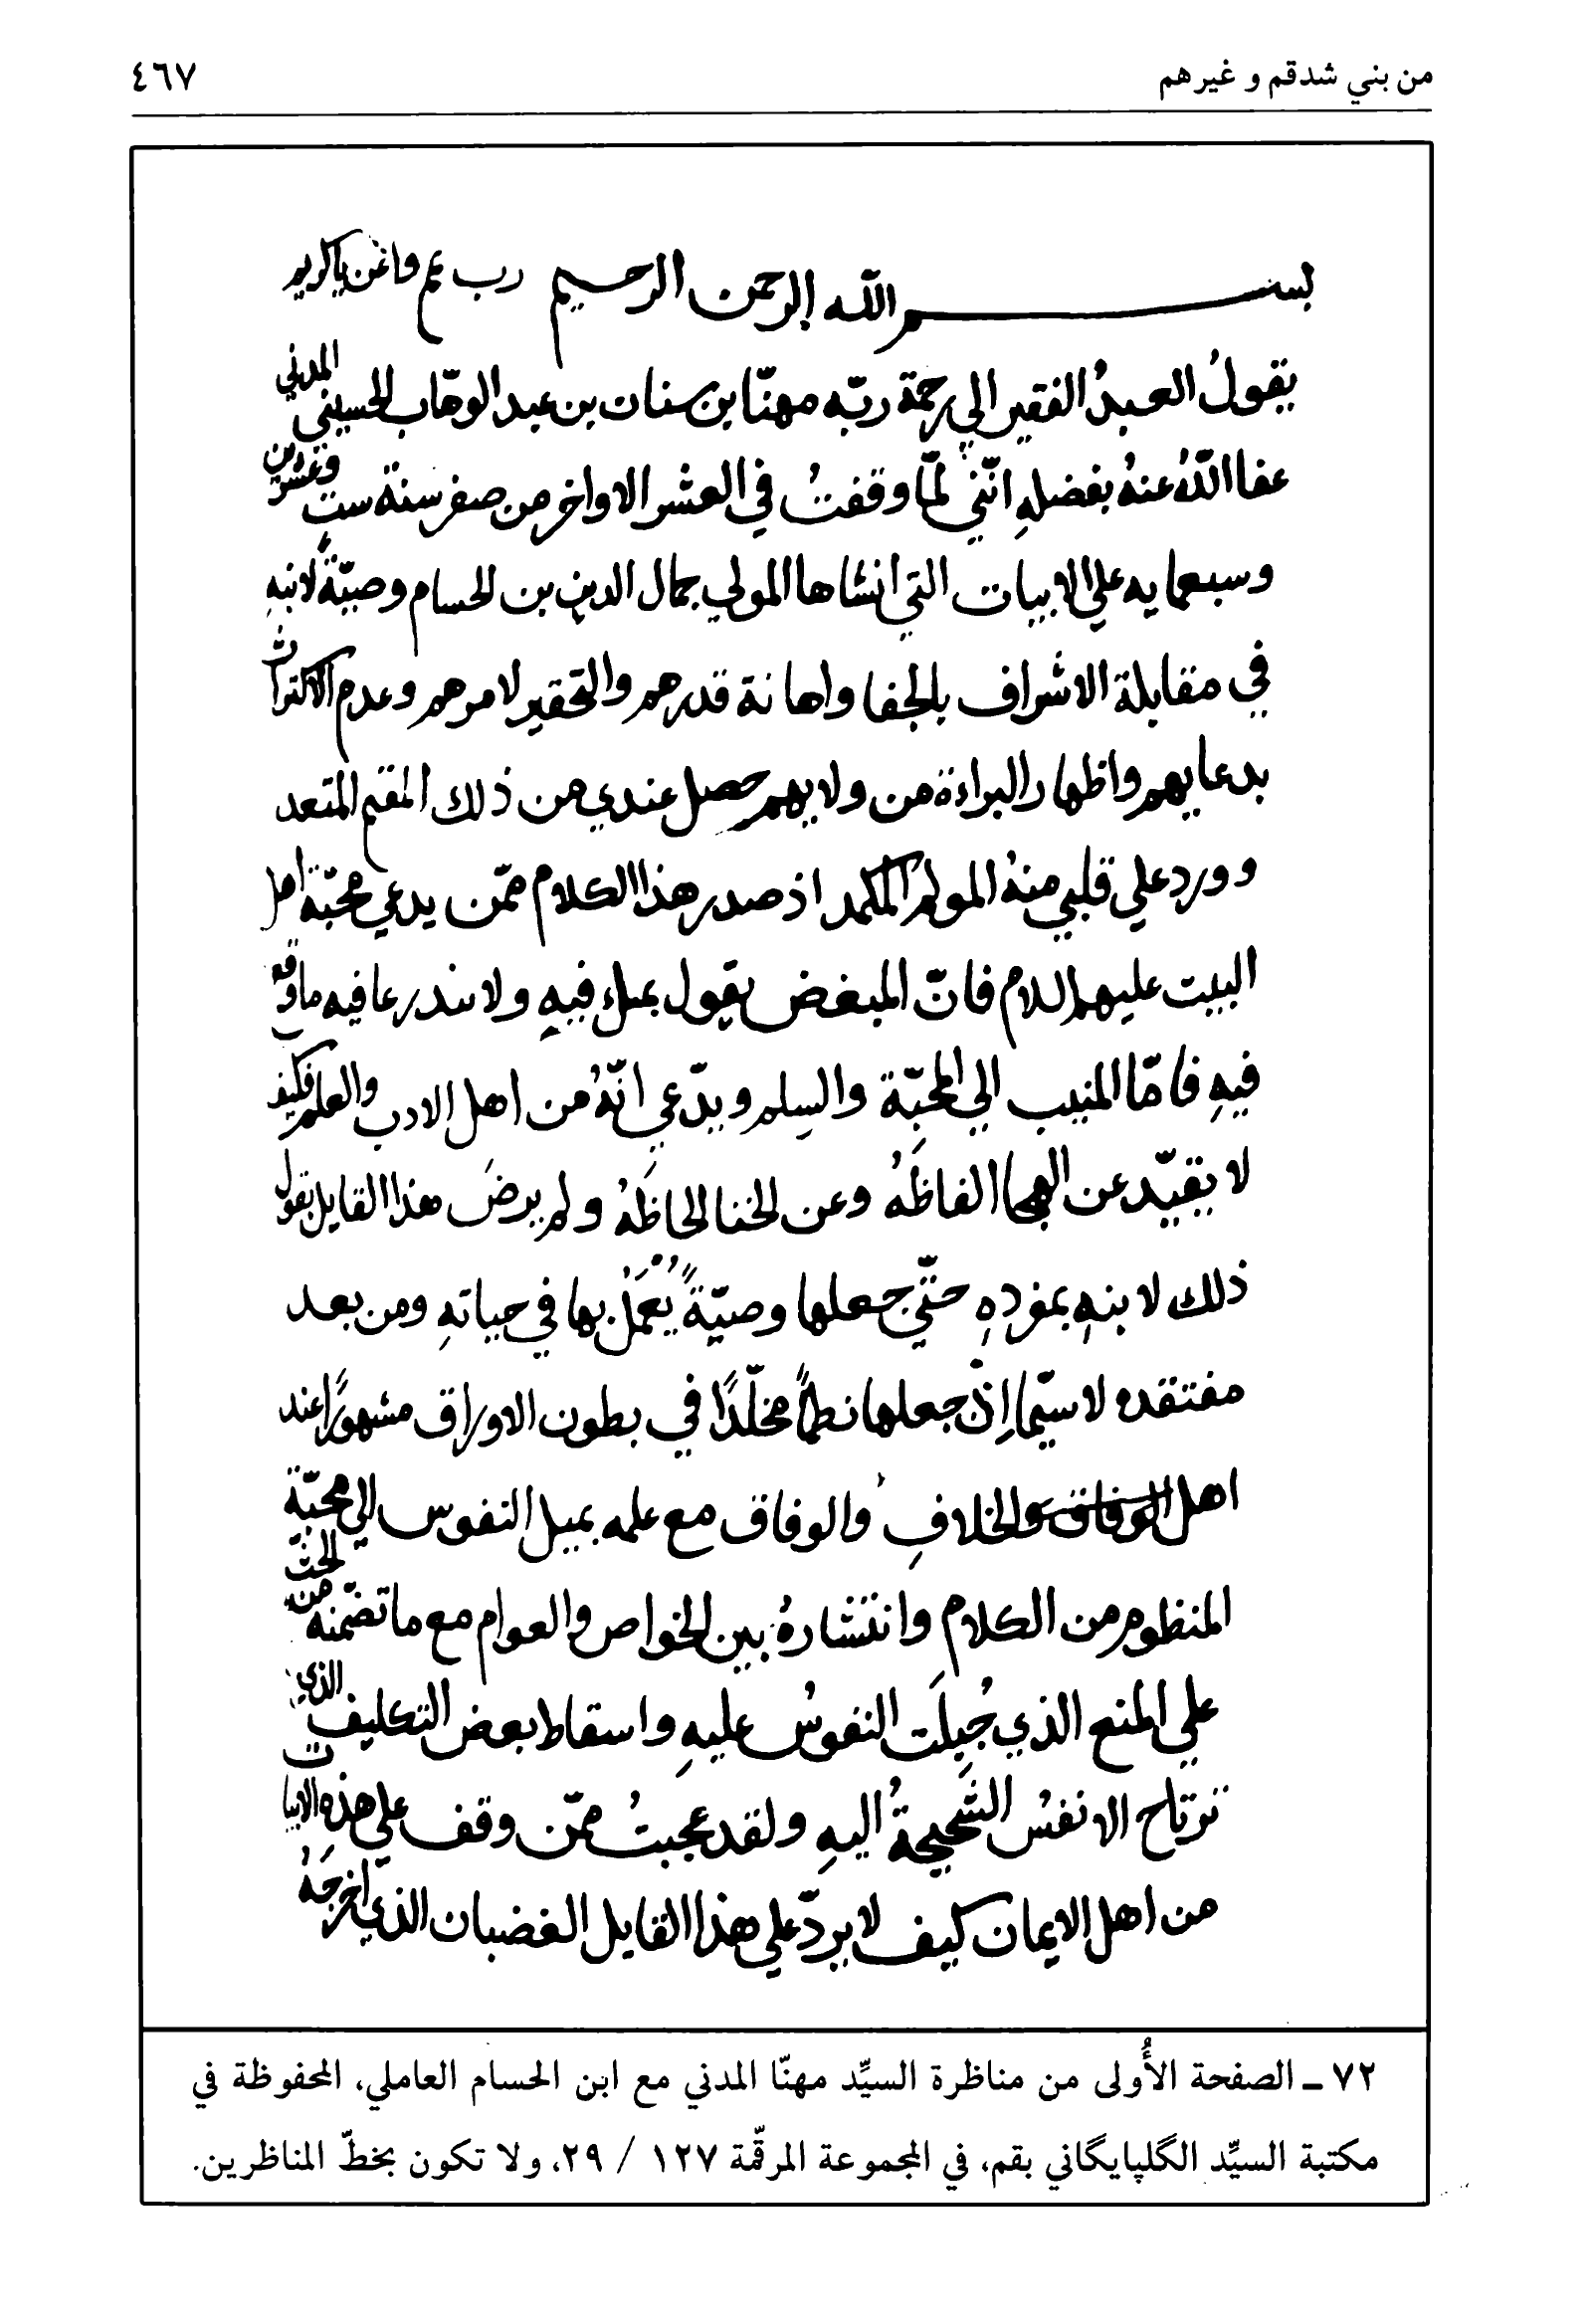 من بني شدقم و غيرهم ٤٦٧
بسم الله الرحمن الرحيم رب عم واغن ياكريم
يقولُ العبدُ الفقير الي رحمة ربّه مهنّا بن سنان بن عبد الوهّاب الحسيني المدني
عفا اللّٰهُ عنهُ بفضلهِ انّني لمّا وقفتُ في العشر الاواخر من صفر سنة ستٍ وعشرين
وسبعمايه علي الابيات التي انشاها المولي جمال الدين بن الحسام وصيّةً لابنهِ
في مقابلة الاشراف بالجفا واهانة قدرهم والتحقير لامرهم وعدم الاكتراث
بدعايهم واظهار البراءة من ولايهم حصل عندي من ذلك المقيم المقعد
وورد علي قلبي منهُ المولم المكمد اذ صدر هذا الكلام ممّن يدعي محبّة اهل
البيت عليهم السلام فانّ المبغض يقول بملء فيهِ ولا يندرعا فيه ما وقع
فيهِ فامّا المنيب الي المحبّة والسِلم ويدّعي انّهُ من اهل الادب والعلم فكيف
لا يقيّد عن الهجا الفاظَهُ وعن الخنا الحاظَهُ ولم يرضَ هذا القايل بقول
ذلك لابنهِ بمفردِهِ حتّي جعلها وصيّةً يُعْمَلُ بها في حياتهِ ومن بعد
مفتقده لاسيّما إذ جعلها نظماً مخلّدًا في بطون الاوراق مشهورًا عند
اهل الوفاق والخلافِ والوفاق مع علمه بميل النفوس الي محبّة
المنظوم من الكلام وانتشارهُ بين الخواص والعوام مع ما تضمّنهُ من الحثّ
علي المنع الذي جُبِلَت النفوسُ عليهِ واسقاط بعض التكليف الذي
ترتاح الانفسُ الشحيحةُ اليهِ ولقد عجبتُ ممّن وقف علي هذه الابيات
من اهل الايمان كيف لا يردّ علي هذا القايل الغضبان الذي اخرجَهُ
٧٢ ـ الصفحة الأُولى من مناظرة السيِّد مهنّا المدني مع ابن الحسام العاملي، المحفوظة في
مكتبة السيِّد الگلپايگاني بقم، في المجموعة المرقّمة ١٢٧ / ٢٩، ولا تكون بخطّ المناظرين.